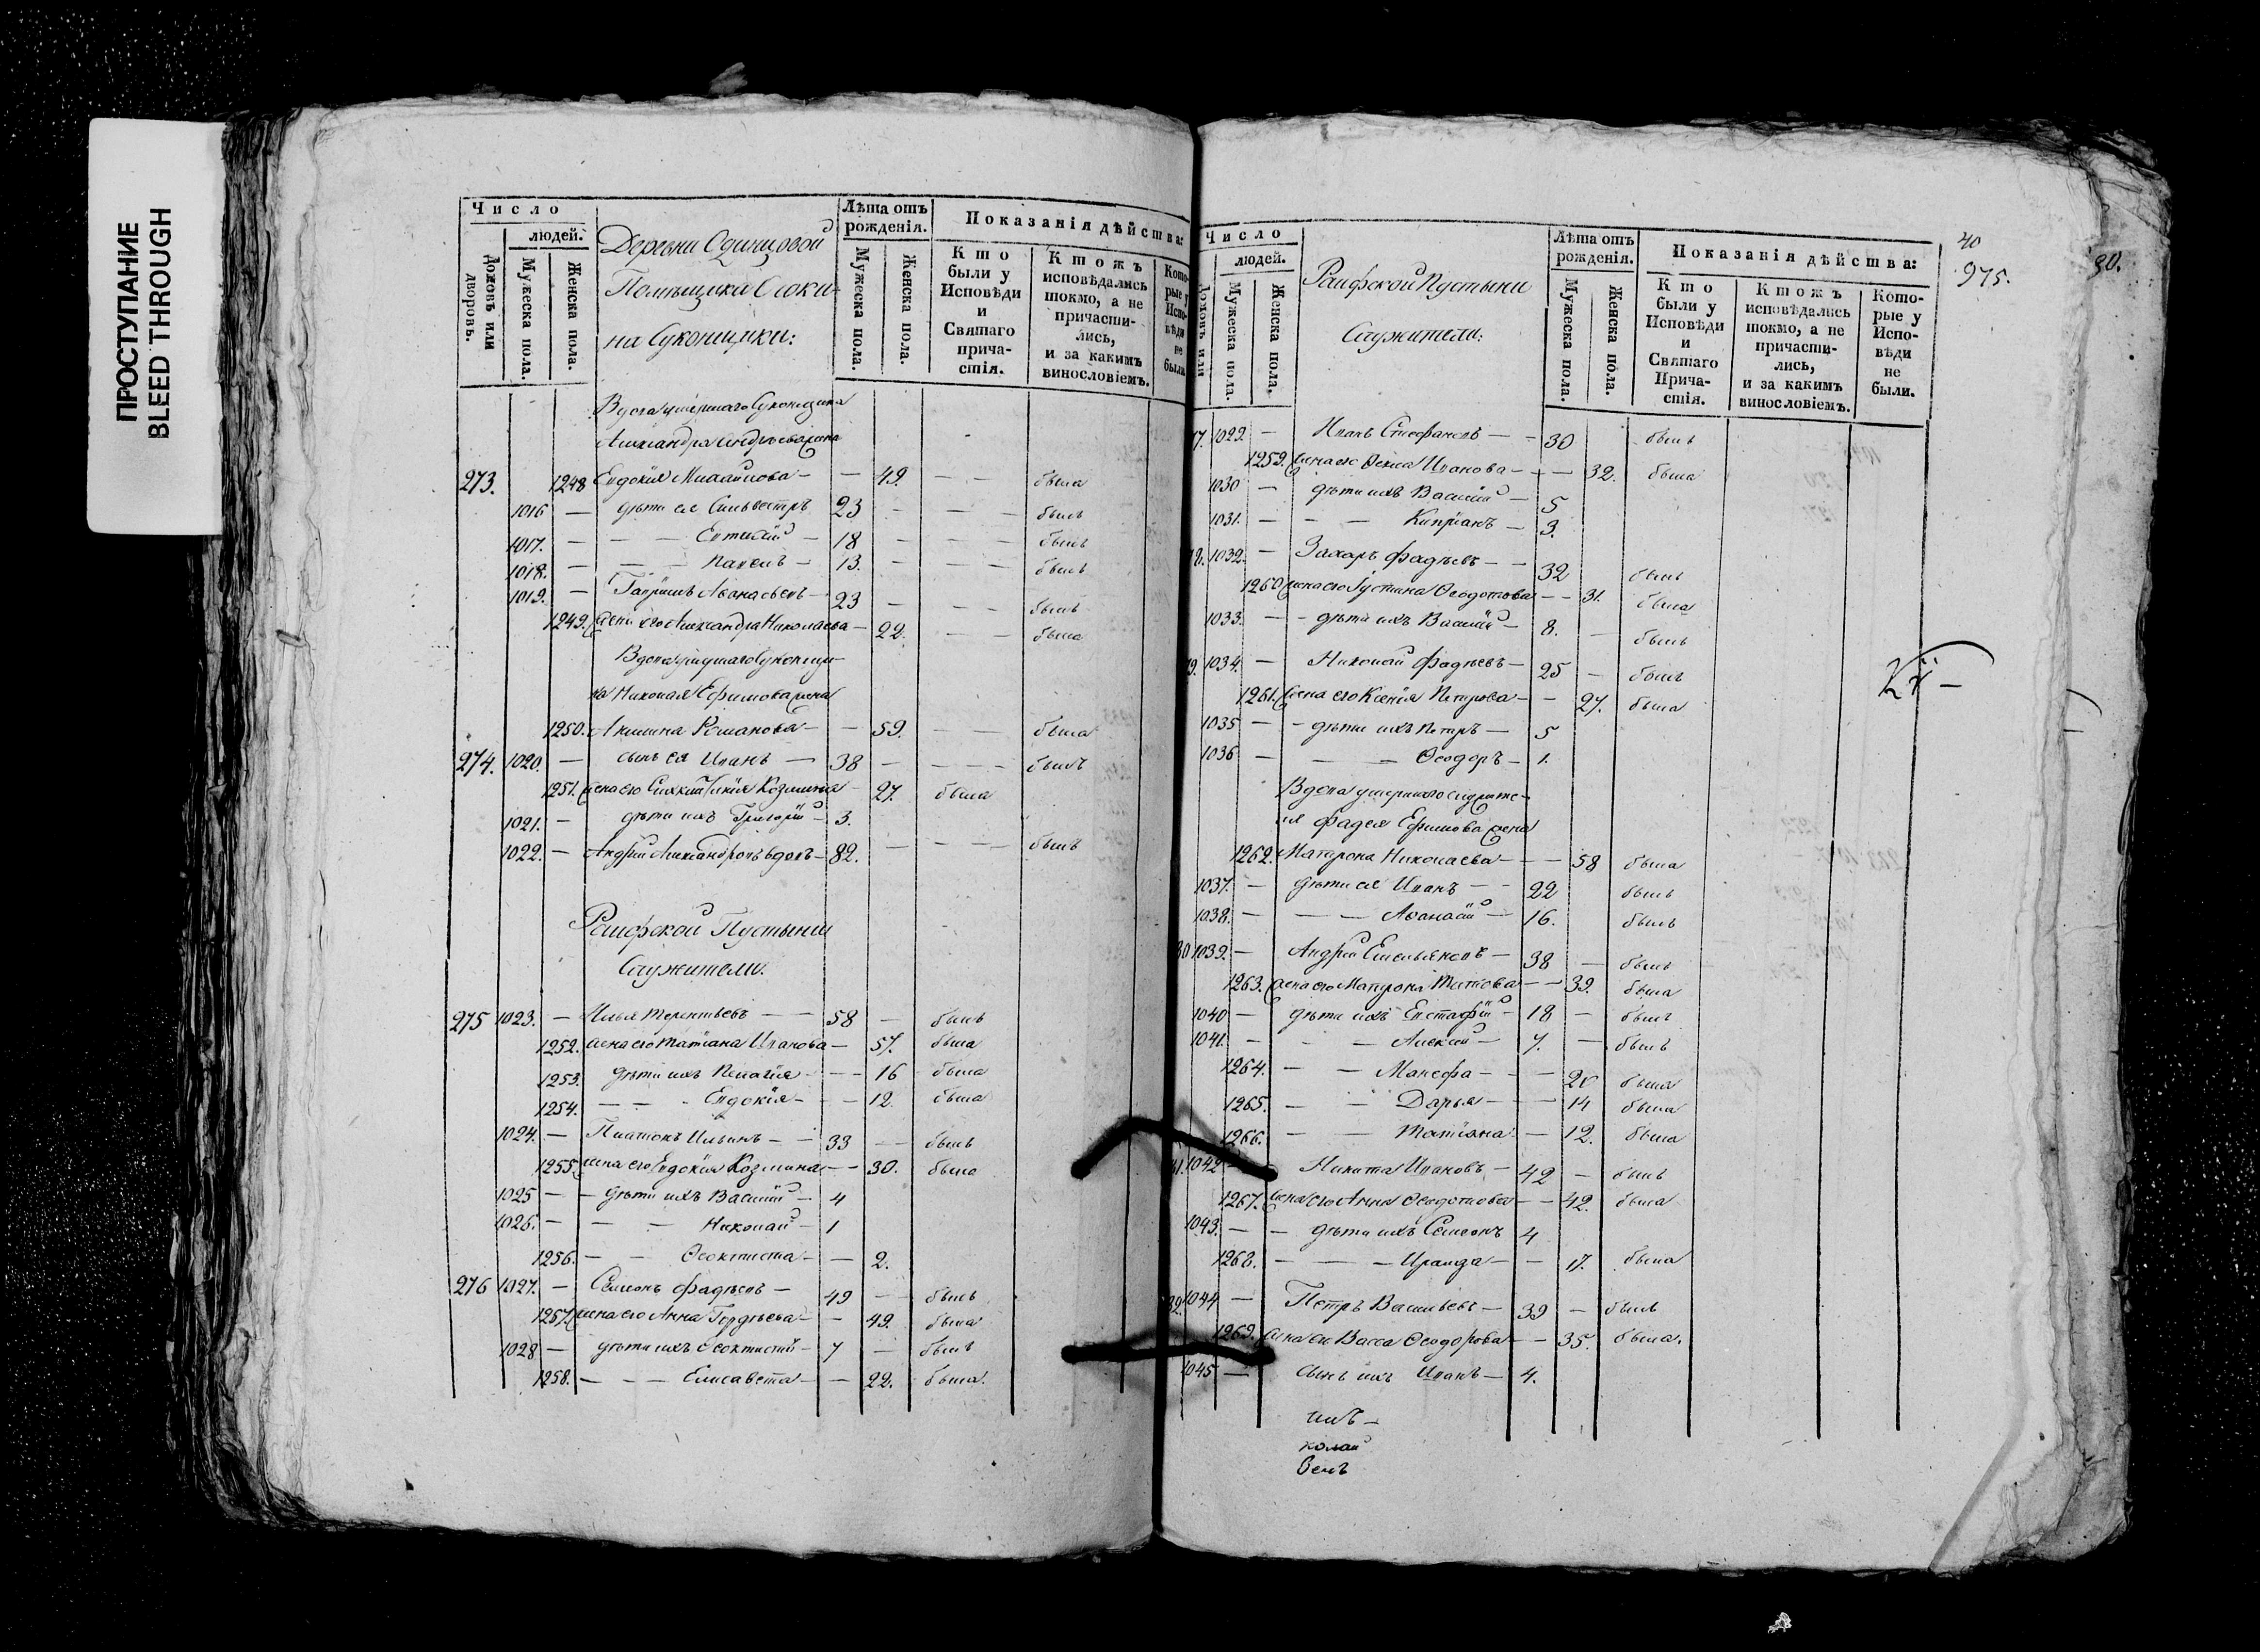 ПРОСТУПАНИЕ
BLEED THROUGH
Число
людей.
Домовъ или дворовъ.
Мужеска пола.
Женска пола.
Деревни Одинцовой
Помѣщика
на Суконщики:
Лѣта отъ рожденія.
Мужеска пола.
Женска пола.
Показанія дѣйства:
Кто были у Исповѣди и Святаго причастія.
Ктожъ исповѣдались токмо, а не причастились, и за какимъ винословіемъ.
Которые у Исповѣди не были.
Вдова умершаго Суконщика
Александра Андреева жена
273. 1248 Евдокія Михайлова — — 49. — — была
1016 — дѣти ея Сильвестръ 23 — — — былъ
1017. — — — Евтихій — 18 — — — былъ
1018. — — — Павелъ — 13. — — — былъ
1019. — Гавріилъ Аѳанасьевъ — 23 — — — былъ
1249. жена его Александра Николаева — 22. — — была
Вдова умершаго Суконщи-
ка Николая Ефимова жена
1250. Акилина Романова — — 59. — — была
274. 1020. — сынъ ея Иванъ — 38 — — — былъ
1251. жена его Козмина — 27. была
1021. — дѣти ихъ Григорій — 3.
1022. — Андрей Александровъ вдовъ — 82. — — — былъ
Раифской Пустыни
Служители.
275 1023. — Илья Терентьевъ — — 58 — былъ
1252. жена его Татіана Иванова — 57. была
1253. дѣти ихъ Пелагія — — 16 была
1254. — — - Евдокія — — 12. была
1024. — Платонъ Ильинъ — — 33 — былъ
1255. жена его Евдокія Козмина — — 30. была
1025 — — дѣти ихъ Василій — 4
1026. — — — Николай — 1
1256. — — Ѳеоктиста — — 2.
276 1027. — Семенъ Фадѣевъ — 49 — былъ
1257. жена его Анна Гордѣева — — 49. была
1028 — дѣти ихъ Ѳеоктистъ — 7 — былъ
1258. — — — Елисавета — — 22. была.
40
975.
90.
Число
людей.
Домовъ или
Мужеска пола.
Женска пола.
Раифской Пустыни
Служители:
Лѣта отъ рожденія.
Мужеска пола.
Женска пола.
Показанія дѣйства:
Кто были у Исповѣди и Святаго Причастія.
Ктожъ исповѣдались токмо, а не причастились, и за какимъ винословіемъ.
Которые у Исповѣди не были.
7. 1029. — Иванъ Стефановъ — — 30 былъ
1259. жена его Ѳекла Иванова — — 32. была
1030 — дѣти ихъ Василій — 5
1031. — — — Кипріанъ — 3.
8. 1032. — Захаръ Фадѣевъ — — 32 былъ
1260 жена его Іустина Ѳеодотова — — 31. была
1033. — — дѣти ихъ Василій — 8. — былъ
9. 1034. — Николай Фадѣевъ — 25 — былъ
1261. жена его Ксенія Петрова — — 27. была
1035 — — дѣти ихъ Петръ — 5
1036 — — — Ѳеодоръ — 1.
Вдова умершаго служите-
ля Фадея Ефимова жена
1262. Матрона Николаева — — 58 была
1037. — дѣти ея Иванъ — — 22 былъ
1038. — — — Аѳанасій — 16. былъ
80 1039. — Андрей Емельяновъ — 38 — былъ
1263. жена его Матрона Титова — — 39. была
1040 — дѣти ихъ Евстафій — 18 — былъ
1041. — — — Алексій — 7. — былъ
1264. — — Манефа — — 20 была
1265. — — Дарья — — 14 была
1266. — — Татіана — 12. была
81. 1042 — Никита Ивановъ — 42 — былъ
1267. жена его Анна Ѳеодотова — — 42. была
1043. — — дѣти ихъ Семеонъ 4
1268. — — — Ираида — — 17. была
82. 1044 — Петръ Васильевъ — 39 — былъ
1269. жена его Васса Ѳеодорова — — 35. была.
1045 — сынъ ихъ Иванъ — 4.